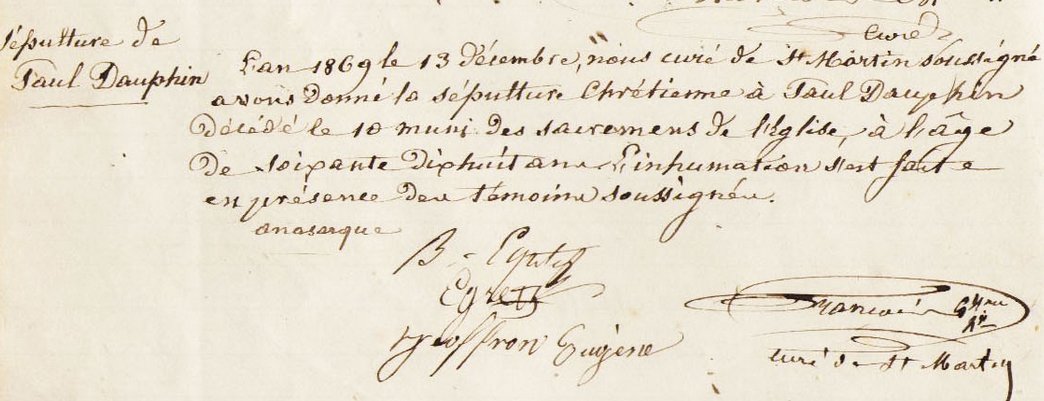 curé
Sépulture de
Paul Dauphin
L'an 1869 le 13 décembre, nous curé de St Martin soussigné
avons donné la sépulture Chrétienne à Paul Dauphin
décédé le 10 muni des sacremens de l'Eglise, à l'âge
de soixante dixhuit ans L'inhumation s'est faite
en présence des témoins soussignés.
anasarque
B.
Geoffron Eugène
François
curé de St Martin